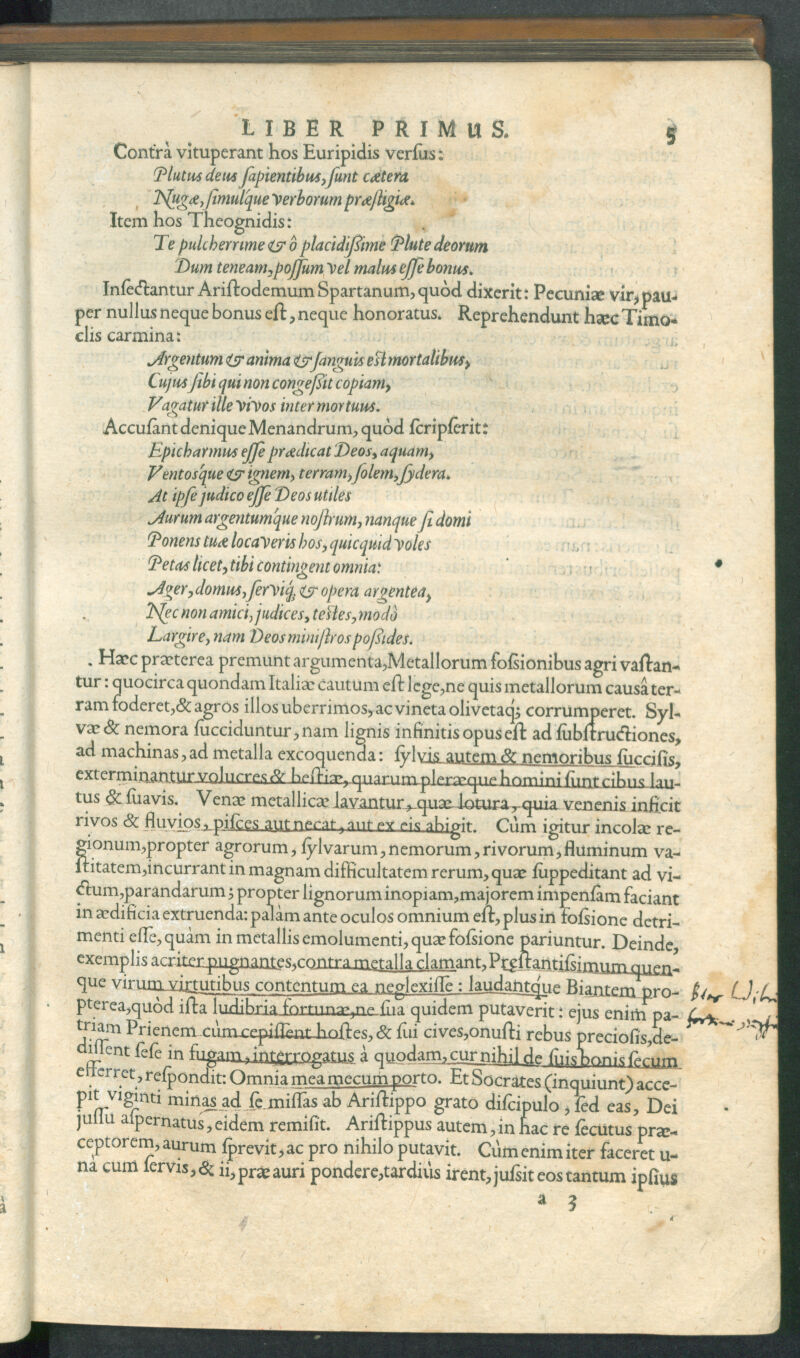 LIBER PRIMUS. 5
Contrà vituperant hos Euripidis verſus:
Plutus deus ſapientibus, ſunt cætera
Nugæ, ſimulq́ue verborum præſtigiæ.
Item hos Theognidis:
Te pulcherrime & ô placidiſsime Plute deorum
Dum teneam, poſſum vel malus eſſe bonus.
Inſectantur Ariſtodemum Spartanum, quòd dixerit: Pecuniæ vir, pau-
per nullus neque bonus eſt, neque honoratus. Reprehendunt hæc Timo-
clis carmina:
Argentum & anima & ſanguis est mortalibus,
Cujus ſibi qui non congeſsit copiam,
Vagatur ille vivos inter mortuus.
Accuſant denique Menandrum, quòd ſcripſerit:
Epicharmus eſſe prædicat Deos, aquam,
Ventosq́ue & ignem, terram, ſolem, ſydera.
At ipſe judico eſſe Deos utiles
Aurum argentumq́ue noſtrum, nanque ſi domi
Ponens tuæ locaveris hos, quicquid voles
Petas licet, tibi contingent omnia:
Ager, domus, ſerviq; & opera argentea,
Nec non amici, judices, testes, modò
Largire, nam Deos miniſtros poſsides.
Hæc præterea premunt argumenta, Metallorum foſsionibus agri vaſtan-
tur: quocirca quondam Italiæ cautum eſt lege, ne quis metallorum causâ ter-
ram foderet, & agros illos uberrimos, ac vineta olivetaq; corrumperet. Syl-
væ & nemora ſucciduntur, nam lignis infinitis opus eſt ad ſubſtructiones,
ad machinas, ad metalla excoquenda: ſylvis autem & nemoribus ſucciſis,
exterminantur volucres & beſtiæ, quarum pleræque homini ſunt cibus lau-
tus & ſuavis. Venæ metallicæ lavantur, quæ lotura, quia venenis inficit
rivos & fluvios, piſces aut necat, aut ex eis abigit. Cùm igitur incolæ re-
gionum, propter agrorum, ſylvarum, nemorum, rivorum, fluminum va-
ſtitatem, incurrant in magnam difficultatem rerum, quæ ſuppeditant ad vi-
ctum, parandarum; propter lignorum inopiam, majorem impenſam faciant
in ædificia extruenda: palàm ante oculos omnium eſt, plus in foſsione detri-
menti eſſe, quàm in metallis emolumenti, quæ foſsione pariuntur. Deinde,
exemplis acriter pugnantes, contra metalla clamant, Prȩſtantiſsimum quen-
que virum virtutibus contentum ea neglexiſſe: laudantq́ue Biantem pro-
pterea, quòd iſta ludibria fortunæ, ne ſua quidem putaverit: ejus enim pa-
triam Prienem cùm cepiſſent hoſtes, & ſui cives, onuſti rebus precioſis, de-
diſſent ſeſe in fugam, interrogatus à quodam, cur nihil de ſuis bonis ſecum
efferret, reſpondit: Omnia mea mecum porto. Et Socrates (inquiunt) acce-
pit viginti minas ad ſe miſſas ab Ariſtippo grato diſcipulo, ſed eas, Dei
juſſu aſpernatus, eidem remiſit. Ariſtippus autem, in hac re ſecutus præ-
ceptorem, aurum ſprevit, ac pro nihilo putavit. Cùm enim iter faceret u-
nà cum ſervis, & ii, præ auri pondere, tardiùs irent, juſsit eos tantum ipſius
a 3